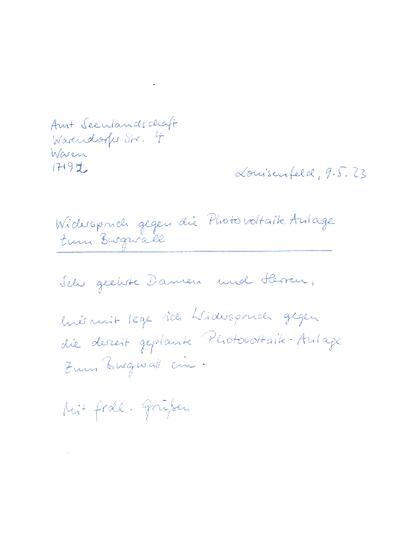 Amt Seenlandschaft
Warendorfer Str. 4
Waren
17192
Louisenfeld, 9.5.23
Widerspruch gegen die Photovoltaik Anlage
zum Burgwall
Sehr geehrte Damen und Herren,
hiermit lege ich Widerspruch gegen
die derzeit geplante Photovoltaik-Anlage
zum Burgwall ein.
Mit frdl. Grüßen